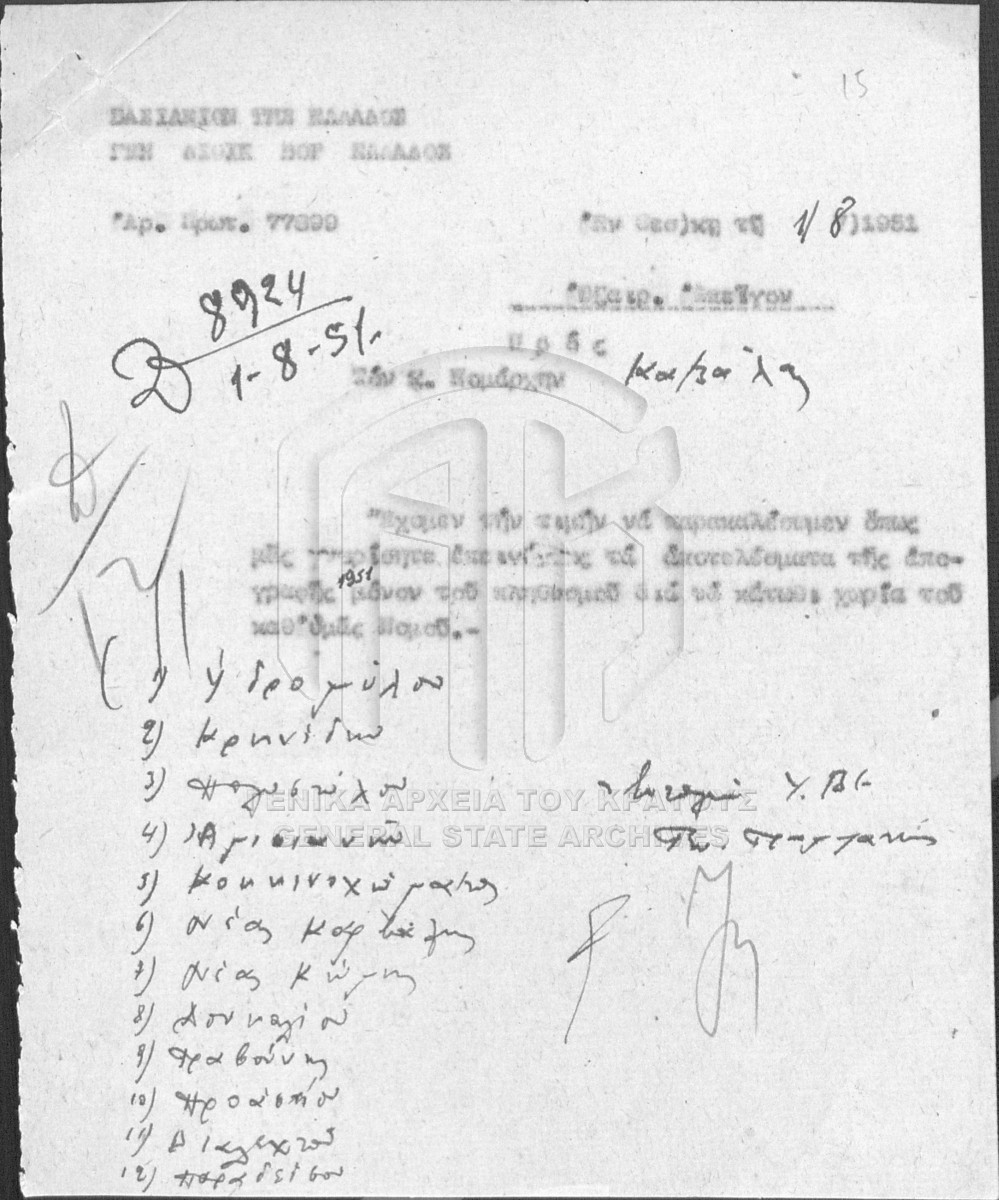 15
ΒΑΣΙΛΕΙΟΝ ΤΗΣ ΕΛΛΑΔΟΣ
ΓΕΝ ΔΙΟΙΚ ΒΟΡ ΕΛΛΑΔΟΣ
Ἀρ. Πρωτ. 77899
Ἐν Θεσ)κῃ τῇ 1/8)1951
Ἐξαιρ. Ἐπεῖγον
8924
1-8-51.
Π ρ ό ς
Τόν κ. Νομάρχην Καβάλας
Ἔχομεν τήν τιμήν νά παρακαλέσωμεν ὅπως
μᾶς γνωρίσητε ἐπειγόντως τά ἀποτελέσματα τῆς ἀπο-
γραφῆς μόνον τοῦ πληθυσμοῦ 1951 διά τά κάτωθι χωρία τοῦ
καθ'ὑμᾶς Νομοῦ.-
1) Υδρομύλου
2) Κρηνίδων
3) Πολυστύλου
4) Ἀμισιανῶν
5) Κοκκινοχώματος
6) Νέας Καρβάλης
7) Νέας Κώμης
8) Λουκαλίου
9) Πραβούνης
10) Προαστίου
11) Διαλεχτοῦ
12) Παραδείσου
Υ. ΒΕ
ΓΕΝΙΚΑ ΑΡΧΕΙΑ ΤΟΥ ΚΡΑΤΟΥΣ
GENERAL STATE ARCHIVES